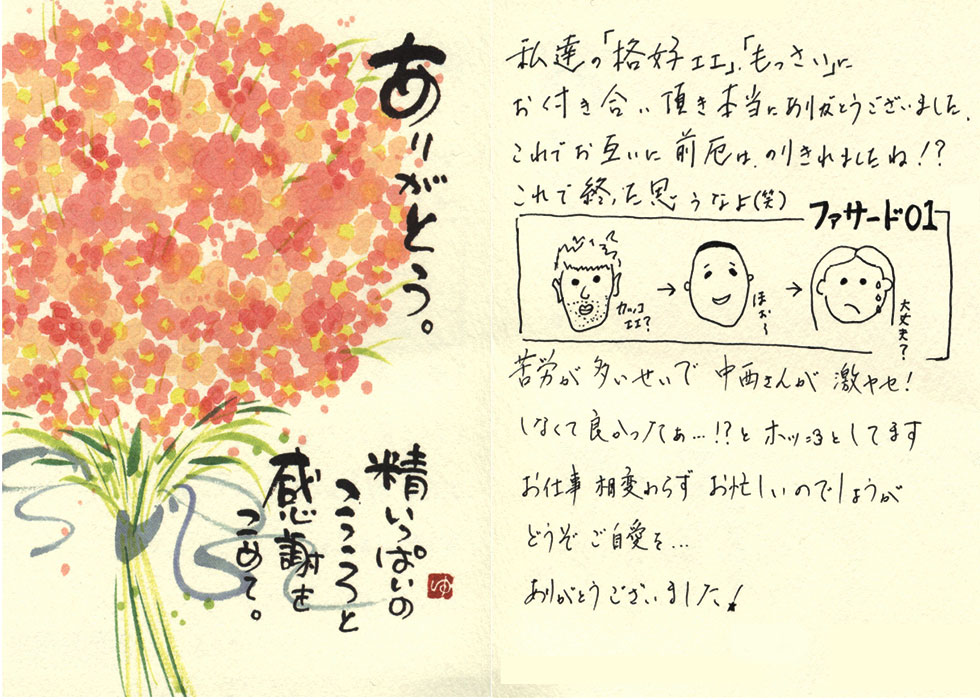 ありがとう。
精いっぱいの
こころと
感謝を
こめて。
ゆ
私達の「格好エエ」、「もっさい」に
お付き合い頂き本当にありがとうございました。
これでお互いに前厄は、のりきれましたね!?
これで終った思うなよ(笑)
ファサード01
カッコエエ?
ほぉ〜
大丈夫?
苦労が多いせいで中西さんが激ヤセ!
しなくて良かったなぁ…!?とホッとしてます
お仕事相変わらずお忙しいのでしょうが
どうぞご自愛を…
ありがとうございました!